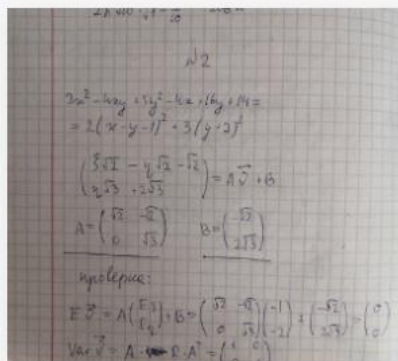 №2
2x² - 4xy + 5y² - 4x + 16y + 14 =
= 2(x - y - 1)² + 3(y - 2)²
(ξ√2 - η√2 - √2
η√3 + 2√3) = Aν⃗ + B
A = (√2 -√2
0 √3) B = (-√2
2√3)
проверка:
Eν⃗ = A(Eξ
Eη) + B = (√2 -√2
0 √3)(-1
-2) + (-√2
2√3) = (0
0)
Var ν⃗ = A · R · Aᵀ =